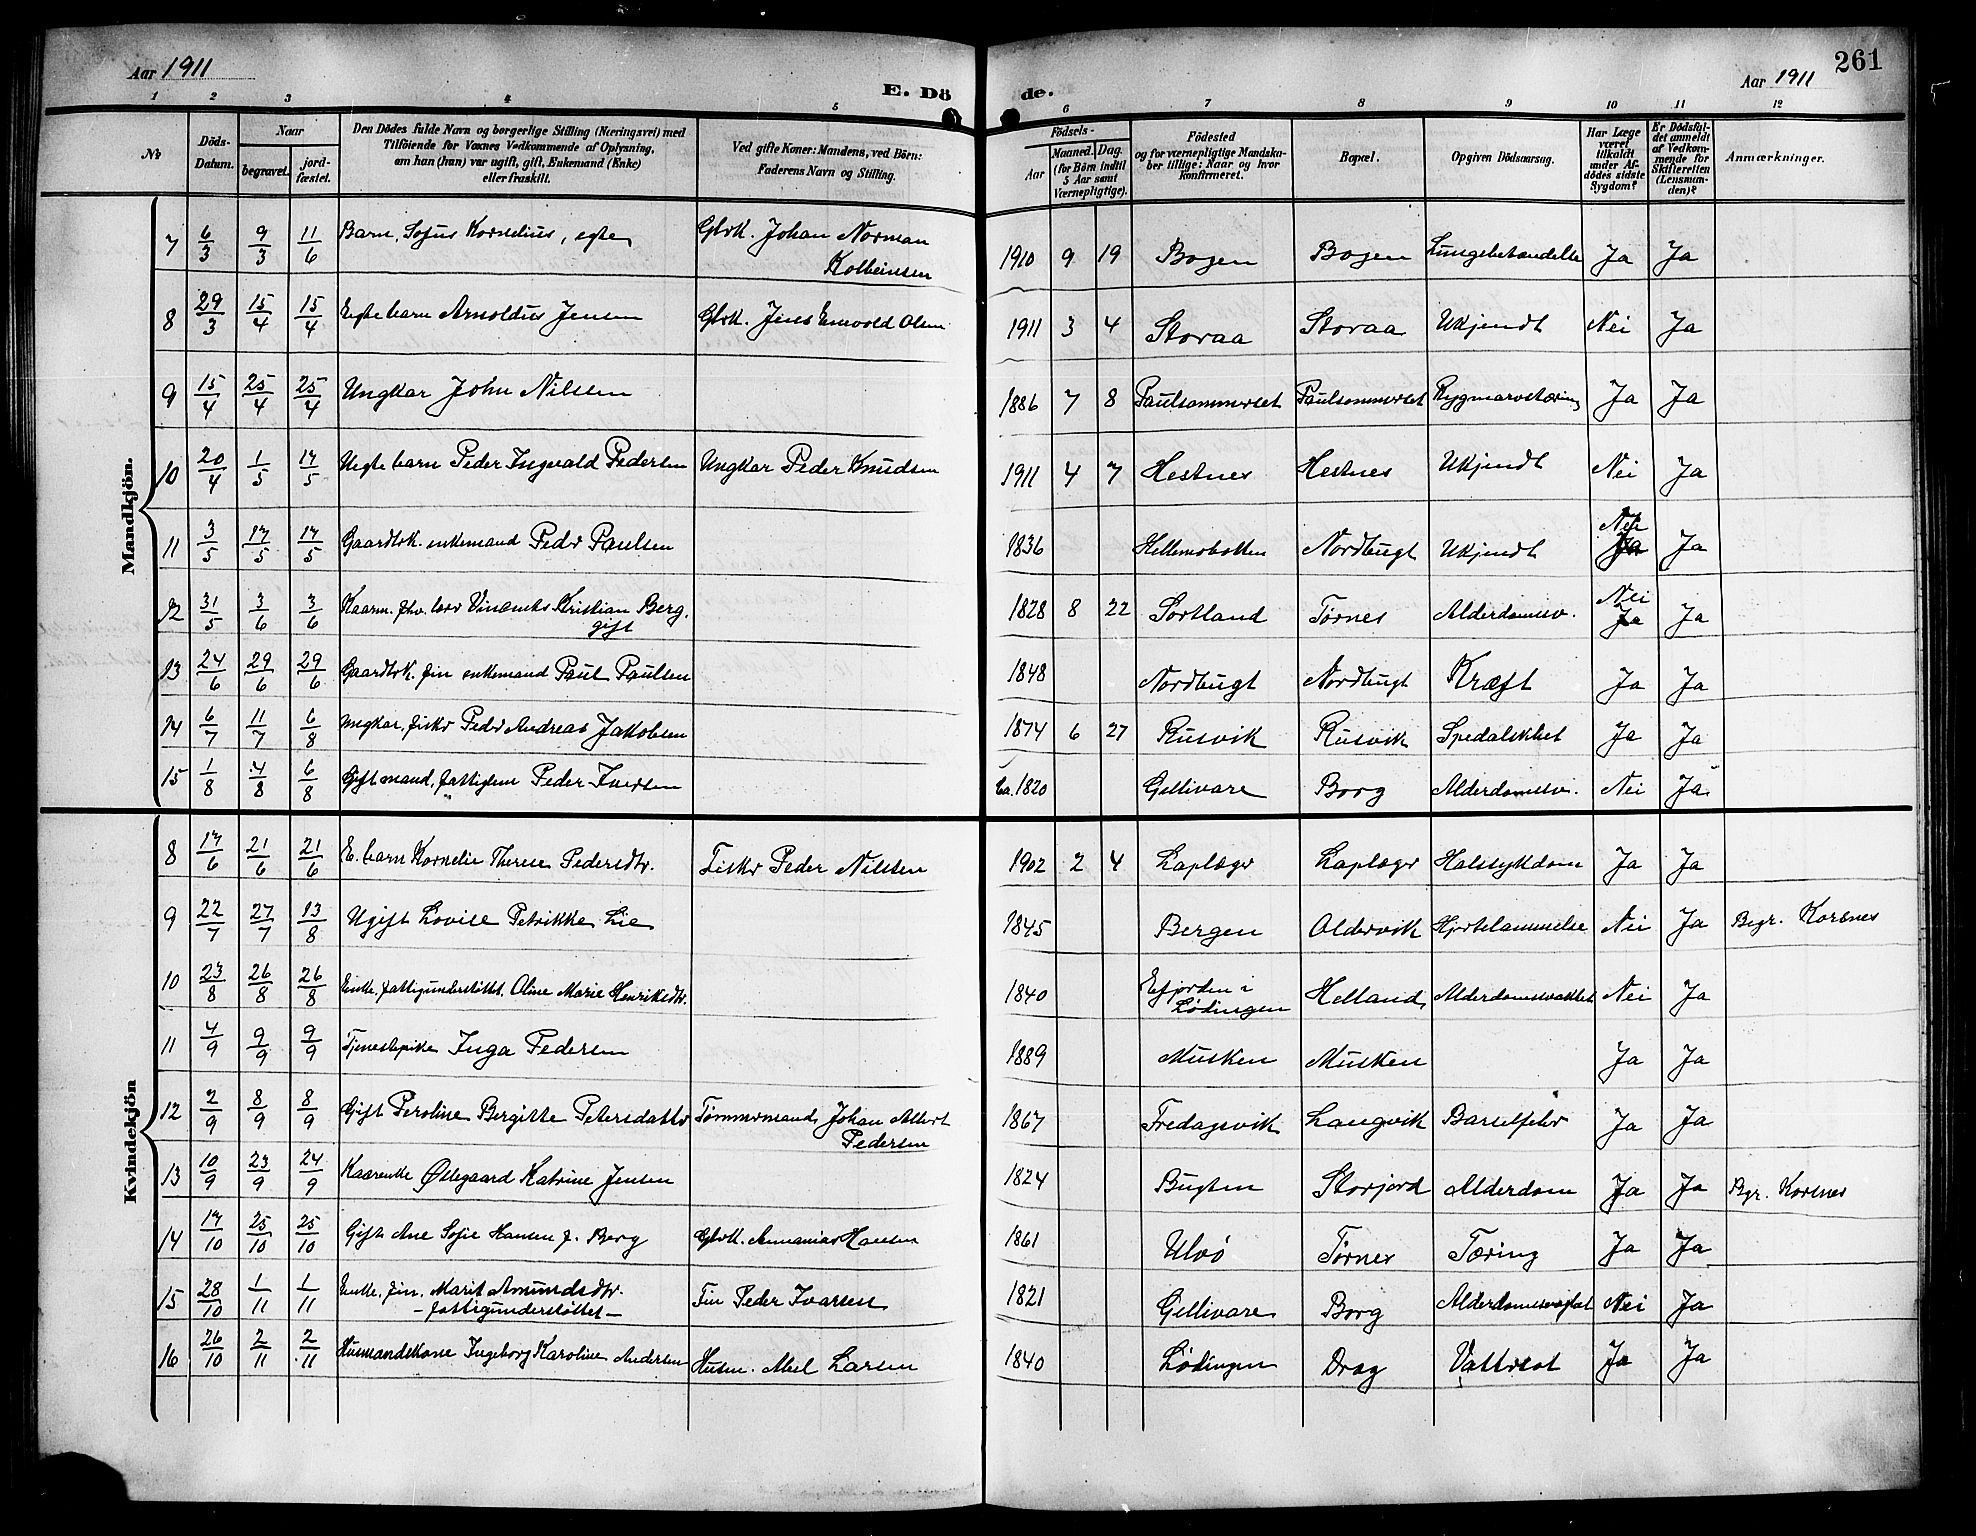 Aar 1911
E. Dö
de.
Aar 1911
261
1 2 3 4 5 6 7 8 9 10 11 12
Nr
Döds-Datum.
Naar
begravet.
jord-fæstet.
Den Dödes fulde Navn og borgerlige Stilling (Næringsvei) med
Tilföiende for Voxnes Vedkommende af Oplysning,
om han (hun) var ugift, gift, Enkemand (Enke)
eller fraskilt.
Ved gifte Koner: Mandens, ved Börn:
Faderens Navn og Stilling.
Födsels-
Aar
Maaned. Dag.
(for Börn indtil
5 Aar samt
Værnepligtige).
Födested
og for værnepligtige Mandska-
ber tillige: Naar og hvor
konfirmeret.
Bopæl.
Opgiven Dödsaarsag.
Har Læge
været
tilkaldt
under Af-
dödes sidste
Sygdom?
Er Dödsfal-
det anmeldt
af Vedkom-
mende for
Skifteretten
(Lensman-
den)?
Anmærkninger.
Mandkjön.
7 6/3 9/3 11/6 Barn, Sofus Kornelius, egte Gbrk. Johan Norman Kolbeinsen 1910 9 19 Bogen Bogen Lungebetændelse Ja Ja
8 29/3 15/4 15/4 Egte barn Arnoldus Jensen Gbrk. Jens Enevold Olsen 1911 3 4 Storaa Storaa Ukjendt Nei Ja
9 15/4 25/4 25/4 Ungkar John Nilssen 1886 7 8 Paulsommerset Paulsommerset Rygmarvstæring Ja Ja
10 20/4 1/5 17/5 Uegte barn Peder Ingvald Pedersen Ungkar Peder Knudsen 1911 4 7 Hestnes Hestnes Ukjendt Nei Ja
11 3/5 17/5 17/5 Gaardbrk. enkemand Peder Paulsen 1836 Hellemobotten Nordbugt Ukjendt Nei Ja Ja
12 31/5 3/6 3/6 Kaarm. fhv. lærer Vincents Kristian Berg, gift 1828 8 22 Sortland Tørnes Alderdomssv. Nei Ja Ja
13 24/6 29/6 29/6 Gaardbrk. fin enkemand Paul Paulsen 1848 Nordbugt Nordbugt Kræft Ja Ja
14 6/7 11/7 6/8 Ungkar, fisker Peder Andreas Jakobsen 1874 6 27 Rusvik Rusvik Spedalskhet Ja Ja
15 1/8 4/8 6/8 Gift mand, fattiglem Peder Iversen Ca. 1820 Gellivare Borg Alderdomssv. Nei Ja
Kvindekjön
8 17/6 21/6 21/6 E. barn Kornelie Therese Pedersdtr. Fisker Peder Nilssen 1902 2 4 Laplæger Laplæger Halssykdom Ja Ja
9 22/7 27/7 13/8 Ugift Lovise Petrikke Lie 1845 Bergen Aldervik Hjertelammelse Nei Ja Begr. Korsnes
10 23/8 26/8 26/8 Enke, fattigunderstøttet, Oline Marie Henriksdtr. 1840 Efjorden i Lødingen Helland Alderdomssvakhet Nei Ja
11 4/9 9/9 9/9 Tjenestepike Inga Pedersen 1889 Musken Musken Ja Ja
12 2/9 8/9 8/9 Gift Peroline Bergitte Petersdatter Tømmermand Johan Albert Pedersen 1867 Fredagsvik Langvik Barselfeber Ja Ja
13 10/9 23/9 24/9 Kaarenke Øllegaard Katrine Jensen 1824 Bugten Storjord Alderdom Ja Ja Bgr. Korsnes
14 17/10 25/10 25/10 Gift Ane Sofie Hansen f. Berg Gbrk. Annanias Hansen 1861 Ulvø Tørnes Tæring Ja Ja
15 28/10 1/11 1/11 Enke, fin, Marit Amundsdtr. - fattigunderstøttet - Fin Peder Ivarsen 1821 Gellivare Borg Alderdomssvakhet Nei Ja
16 26/10 2/11 2/11 Husmandskone Ingeborg Karoline Andersen Husm. Abel Larsen 1840 Lødingen Drag Vattersot Ja Ja